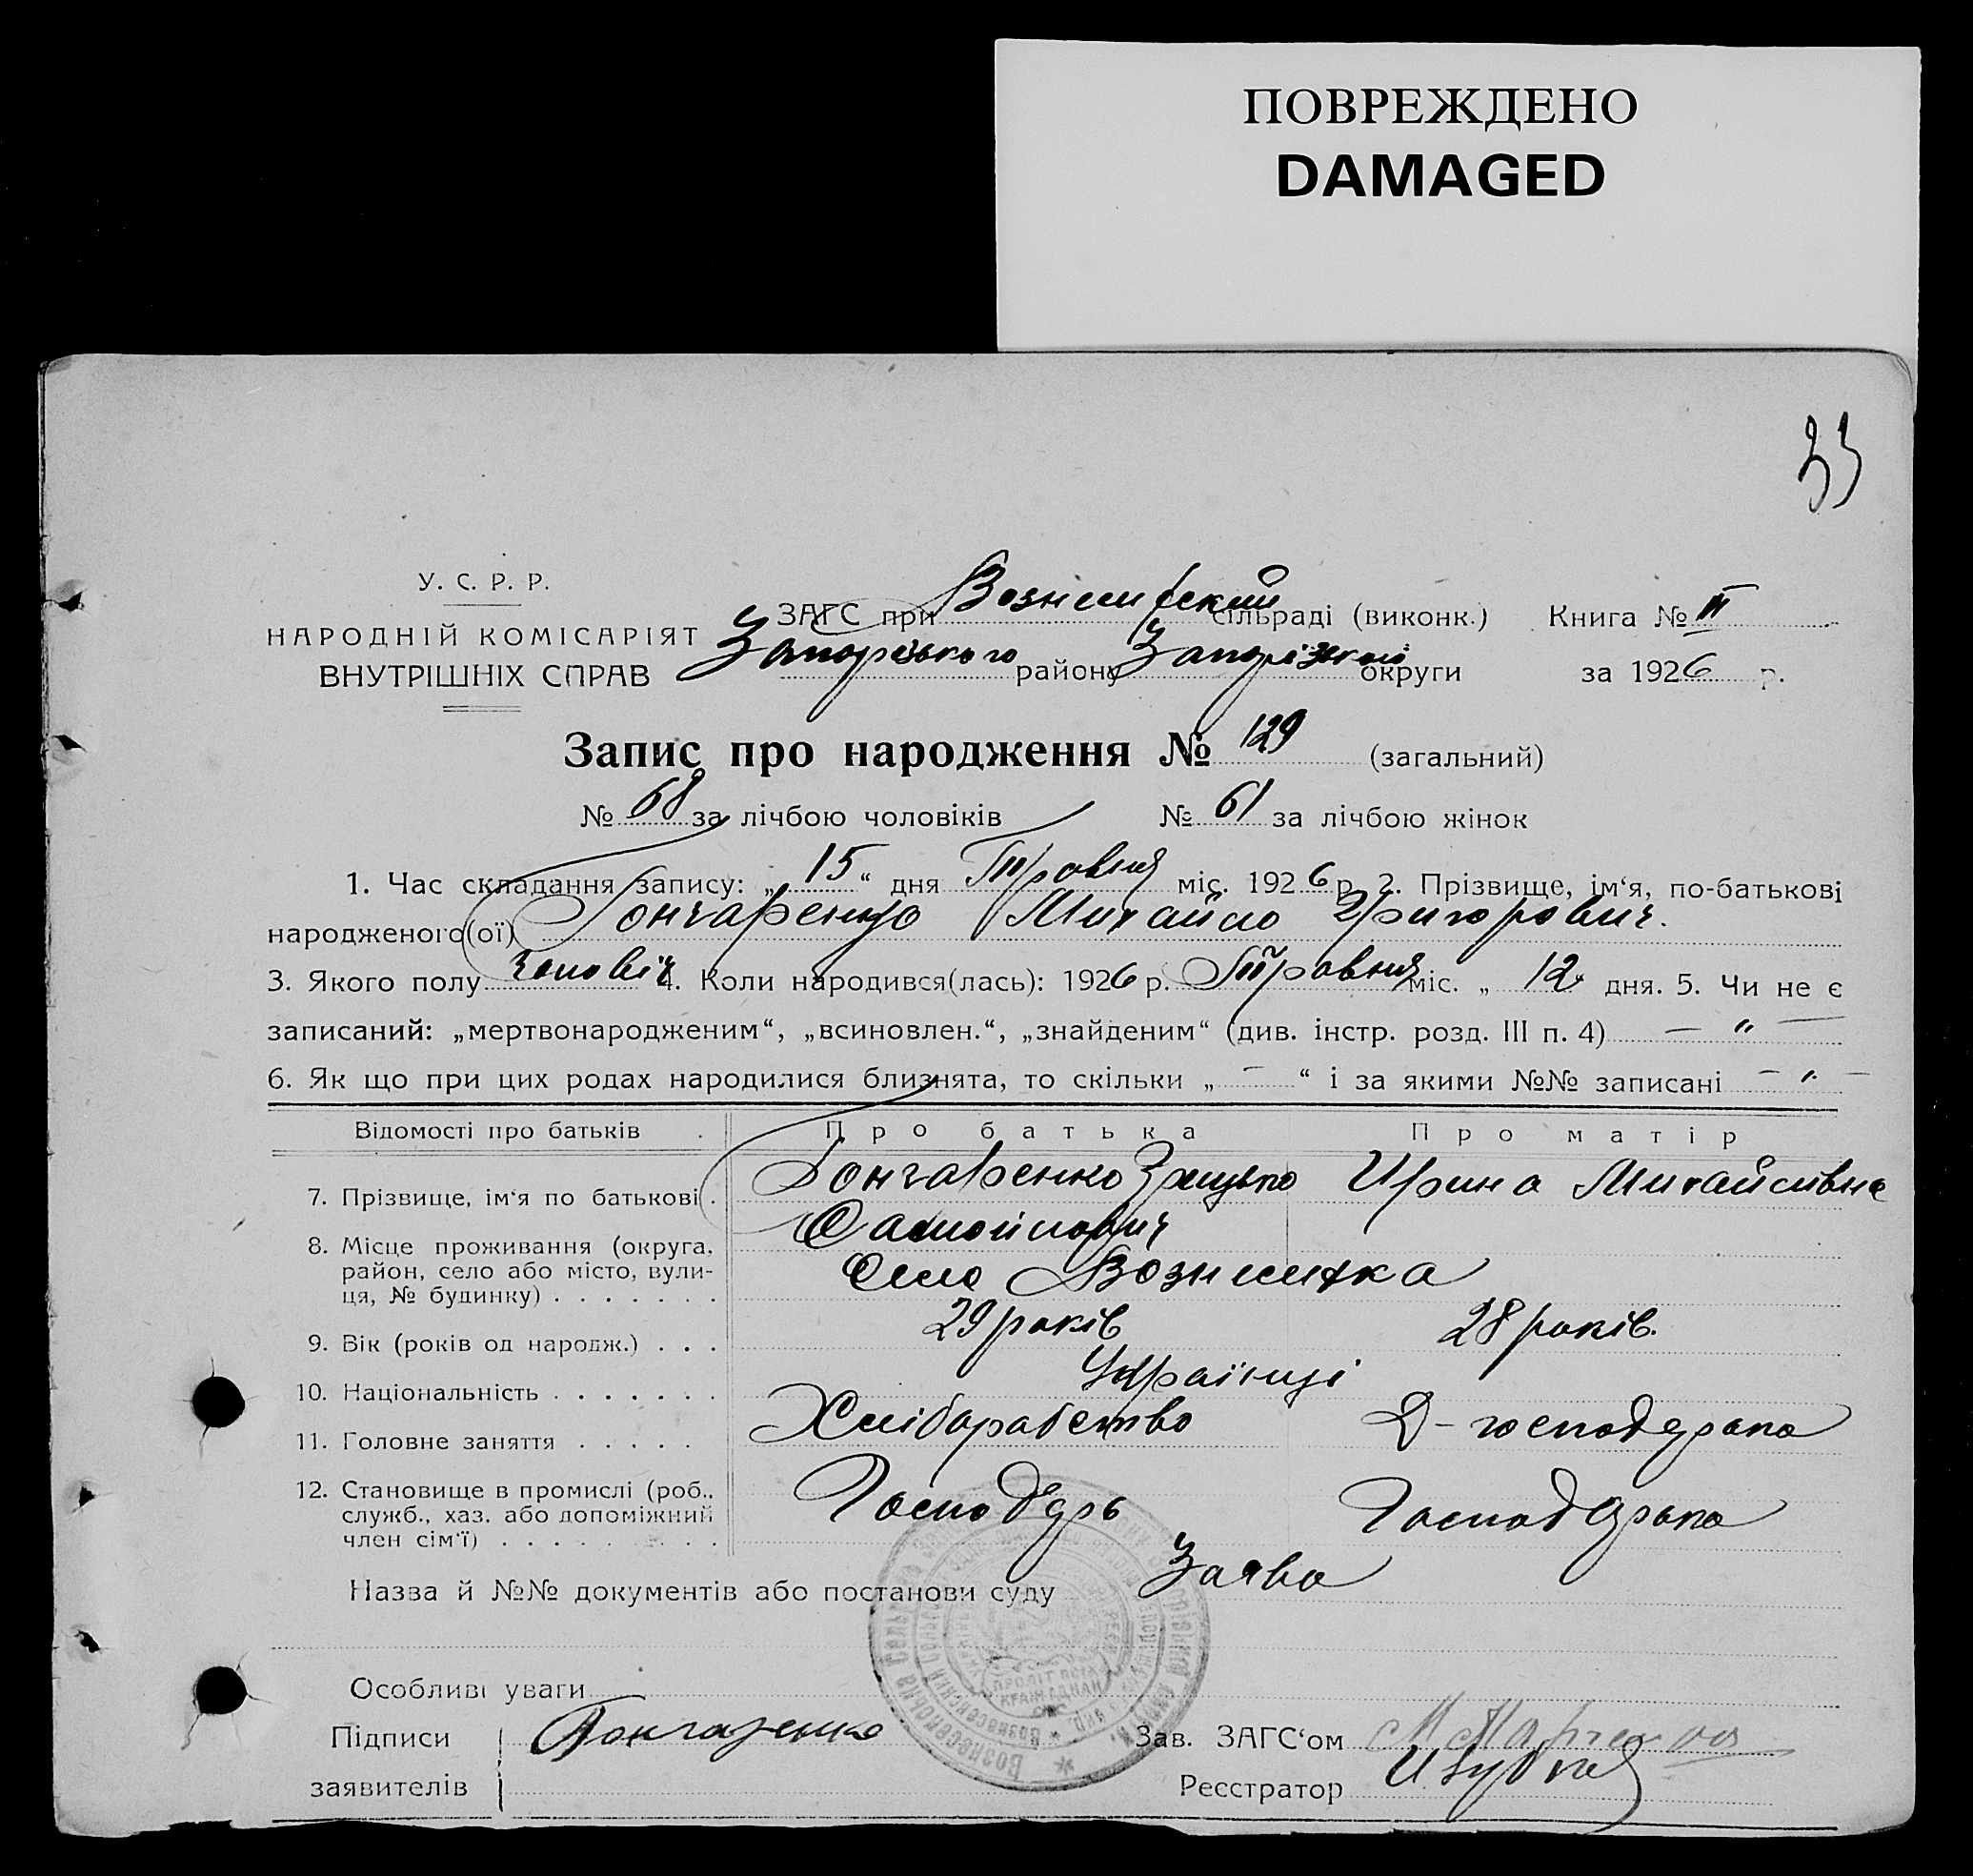 ПОВРЕЖДЕНО
DAMAGED
33
У. С. Р. Р.
НАРОДНІЙ КОМІСАРІЯТ
ВНУТРІШНІХ СПРАВ
ЗАГС при сільраді (виконк.) Книга № III
Запорізького району Запорізької округи за 1926 р.
Запис про народження № 129 (загальний)
№ 68 за лічбою чоловіків № 61 за лічбою жінок
1. Час складання запису: „15“ дня Травня міс. 1926 р. 2. Прізвище, ім‘я, по-батькові
народженого(ої) Гончаренко Михайло Григорович.
3. Якого полу чоловіч 4. Коли народився(лась): 1926 р. Травня міс. „ 12 дня. 5. Чи не є
записаний: „мертвонародженим“, „всиновлен.“, „знайденим“ (див. інстр. розд. III п. 4) — " —
6. Як що при цих родах народилися близнята, то скільки „ — “ і за якими №№ записані — " —
Відомості про батьків Про батька Про матір
7. Прізвище, ім‘я по батькові . Гончаренко Грицько Ирина Михайливна
Самойлович
8. Місце проживання (округа, район, село або місто, вули-
ця, № будинку) . . . . . . . Село
9. Вік (років од народж.) . . . 29 років 28 років.
10. Національність . . . . . . . Українці
11. Головне заняття . . . . . Хліборобство Д-господарка
12. Становище в промислі (роб.,
служб., хаз. або допоміжний
член сім‘ї) . . . . . . . . . Господарь Господарка
Назва й №№ документів або постанови суду Заява
Особливі уваги
Підписи Гончаренко Зав. ЗАГС‘ом
заявителів Реєстратор